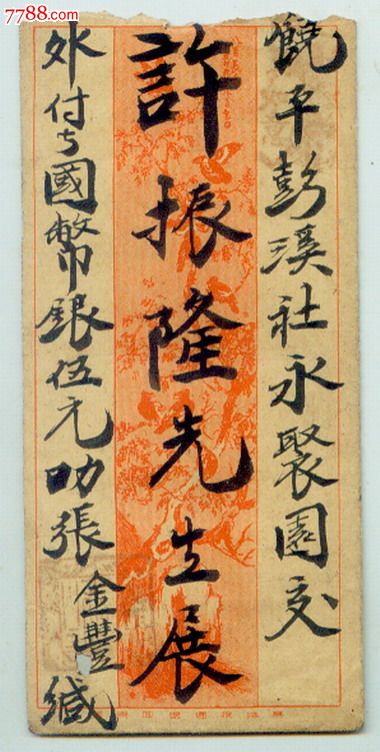 7788.com
饒平彭溪社永聚園交
許振隆先生展
外付与國幣銀伍元叻張金豐緘